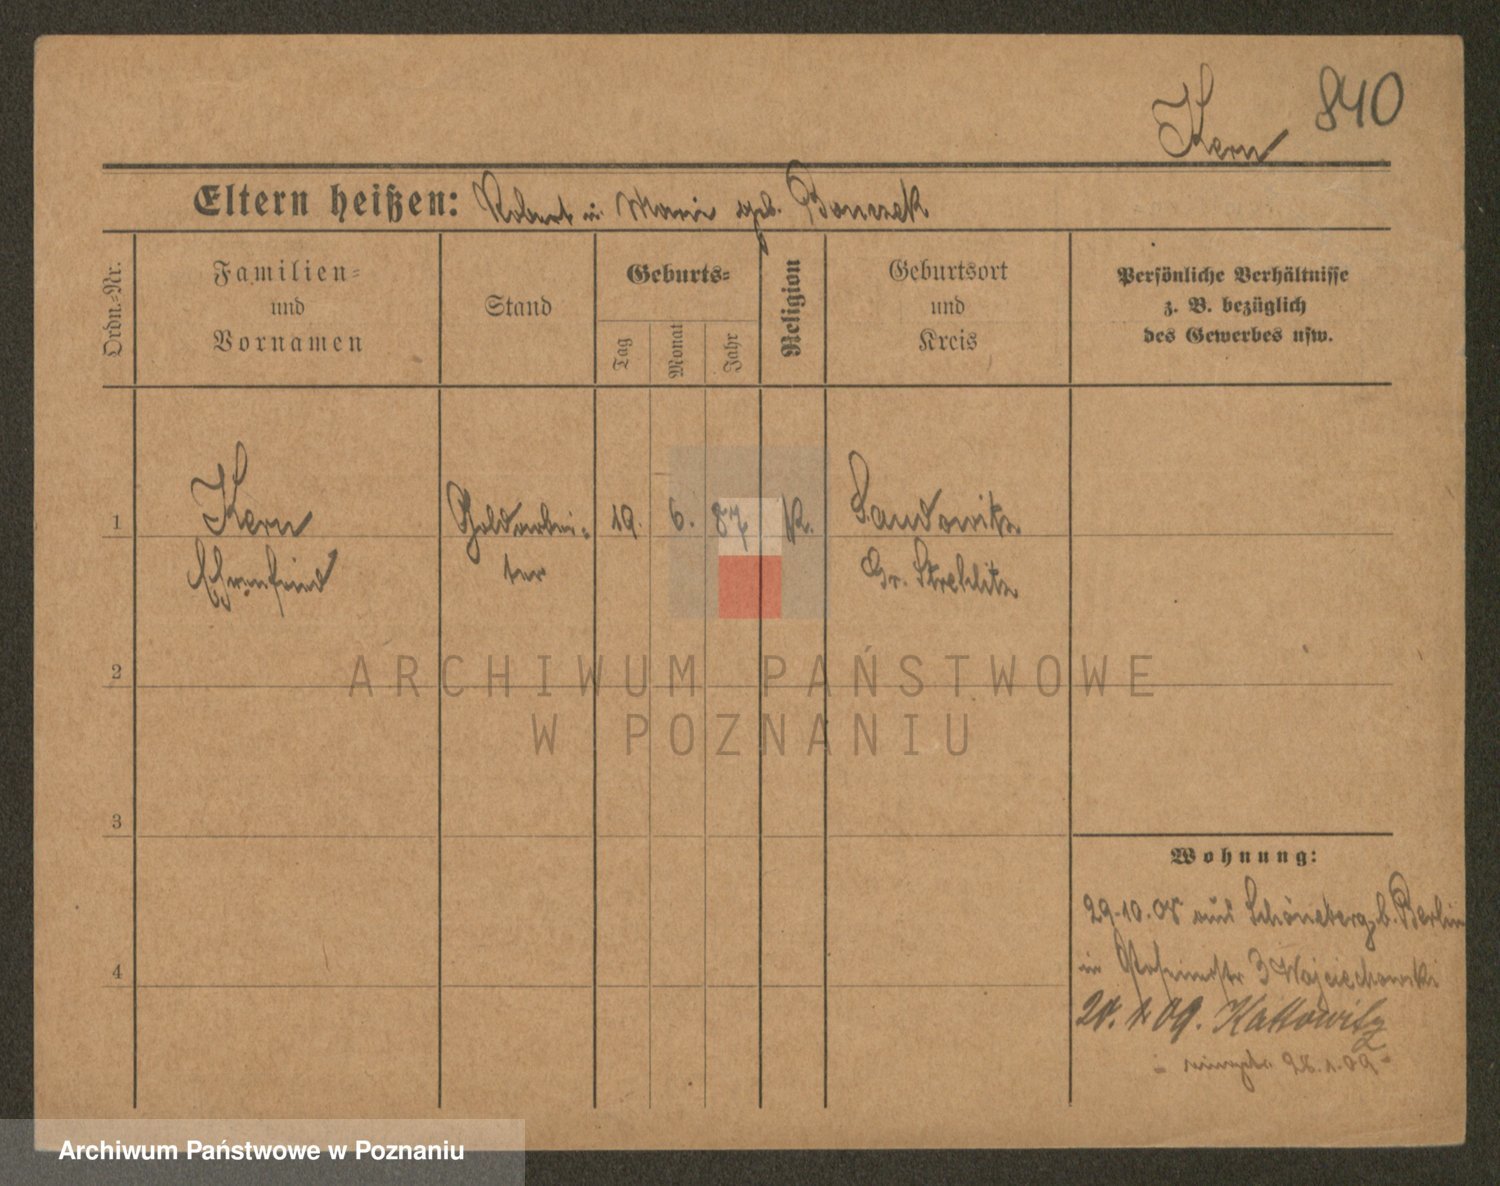 Kern 840
Eltern heißen: Robert u. Marie geb. Bonczek
Ordn.-Nr.
Familien-
und
Vornamen
Stand
Geburts-
Tag
Monat
Jahr
Religion
Geburtsort
und
Kreis
Persönliche Verhältnisse
z. B. bezüglich
des Gewerbes usw.
1 Kern Goldarbei- 19. 6. 87 K. Sandowitz
Ehrenfried ter Gr. Strehlitz
2
ARCHIWUM PAŃSTWOWE
W POZNANIU
3
Wohnung:
29.10.08 aus Schöneberg b. Berlin
in 3 Wojciechowski
4
09. Kattowitz
28.1.09
Archiwum Państwowe w Poznaniu